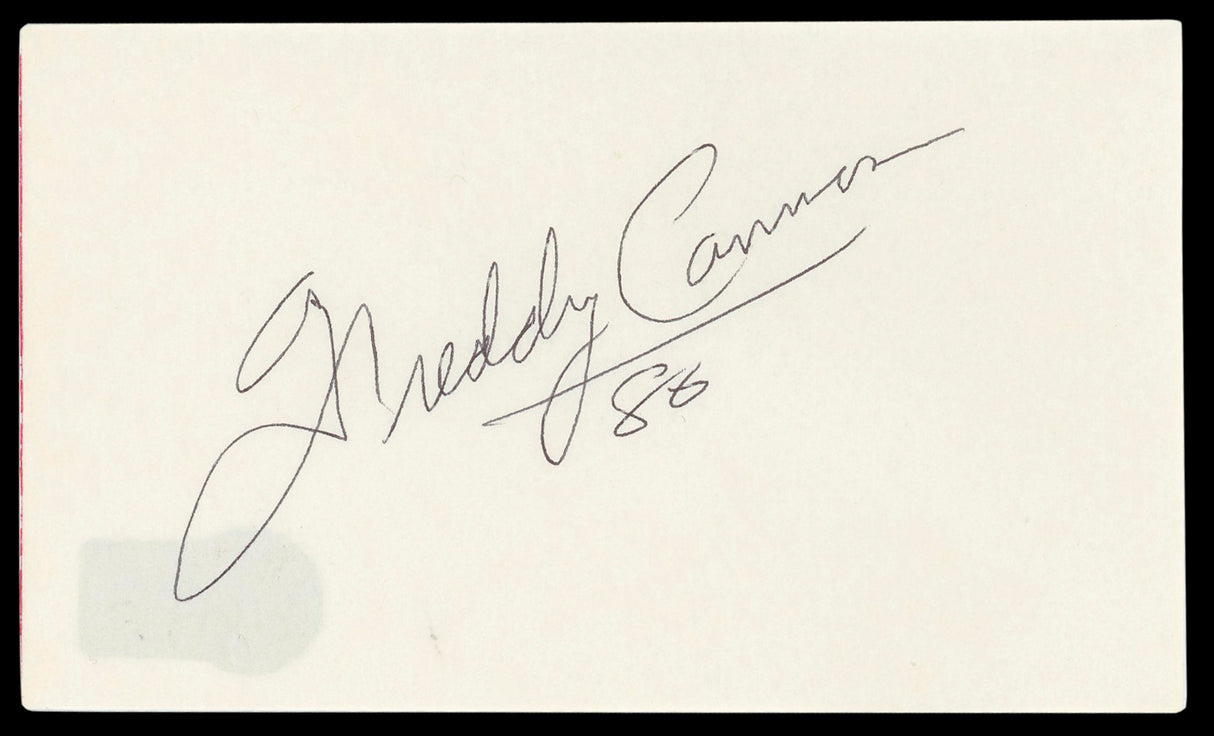 Freddy Cannon
88